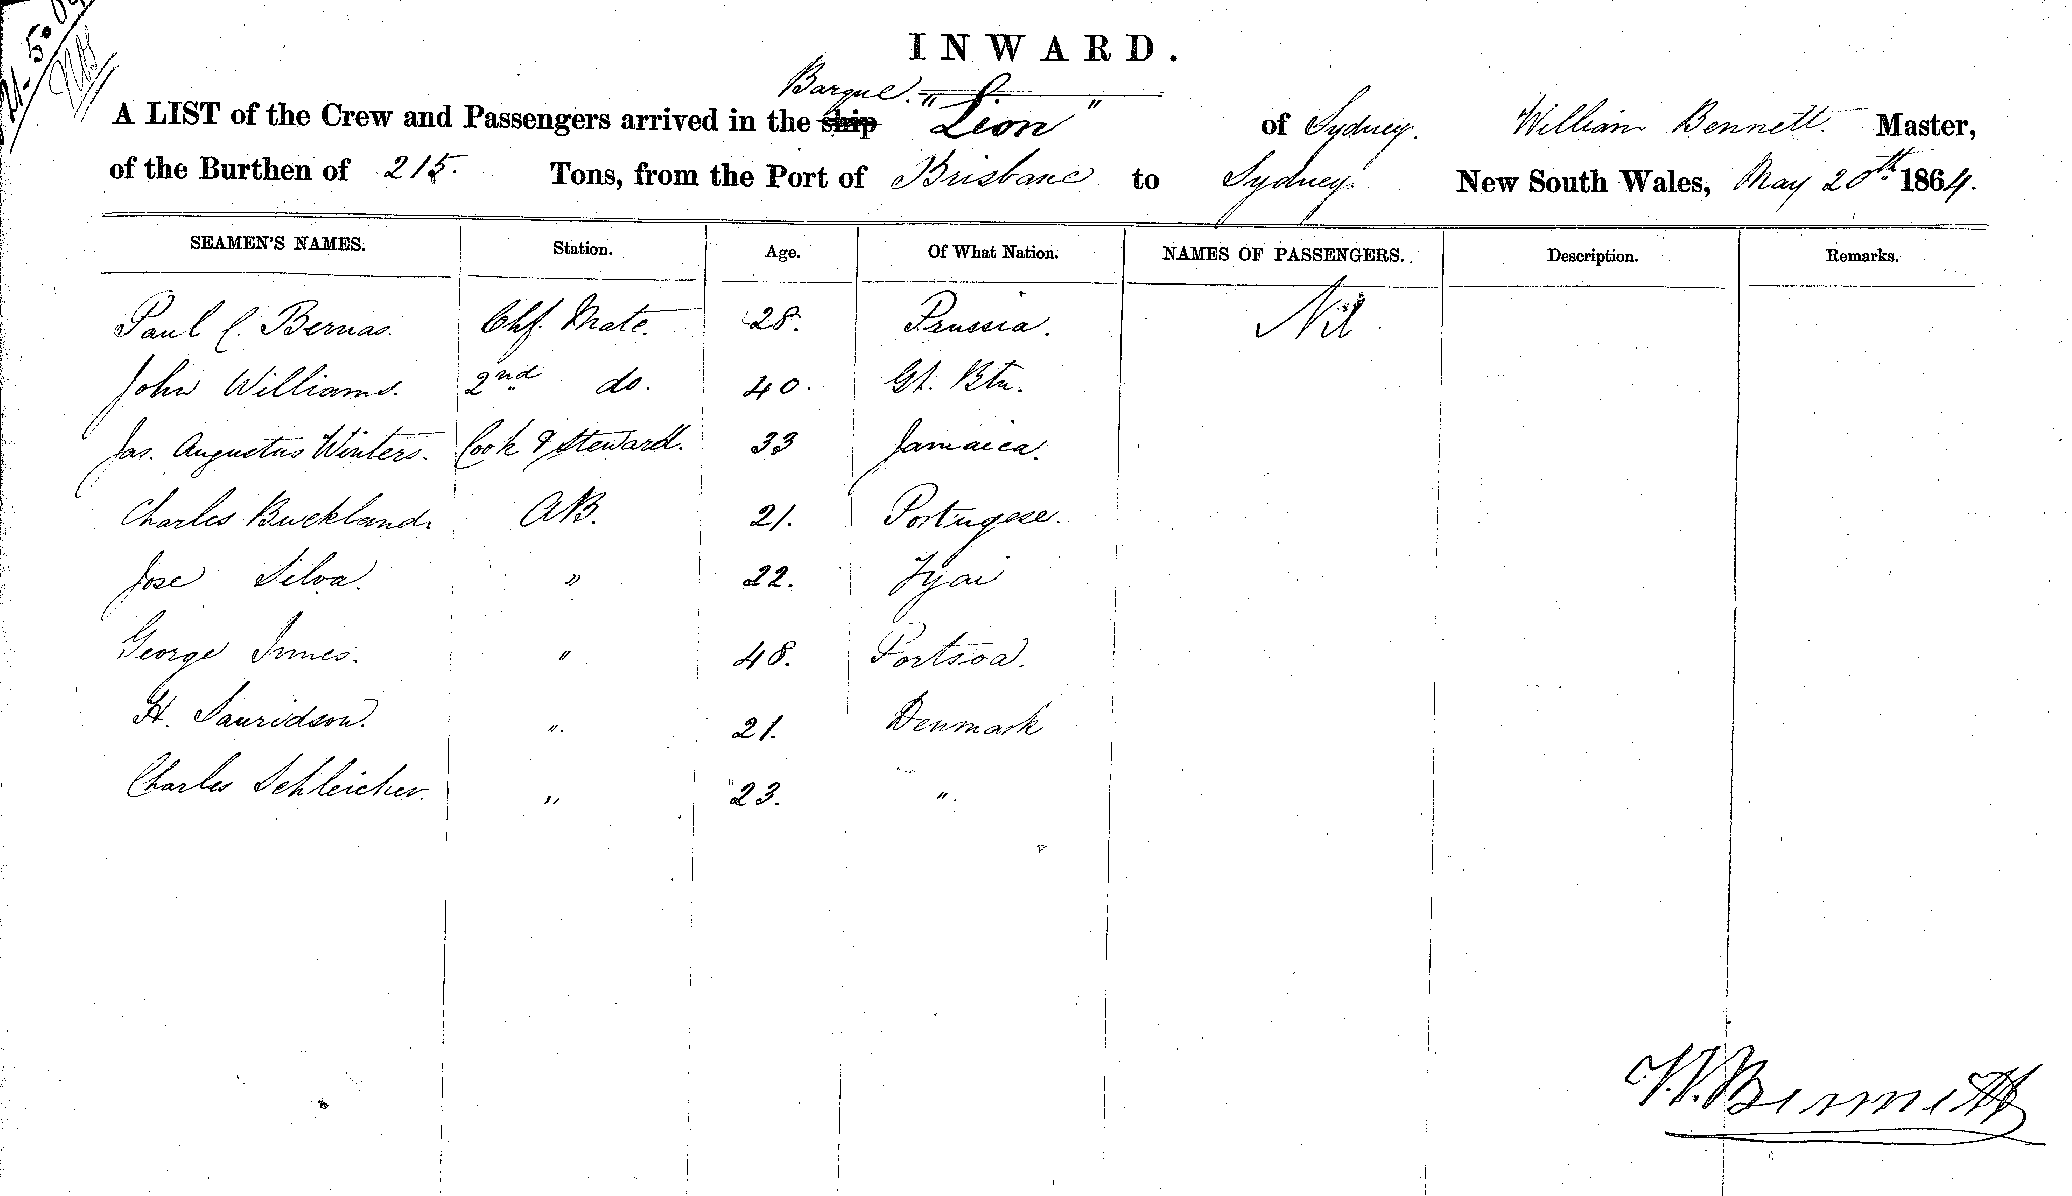 21-5-64
INWARD.
Barque.
A LIST of the Crew and Passengers arrived in the ship "Leon" of Sydney. William Bennett. Master,
of the Burthen of 215. Tons, from the Port of Brisbane to Sydney. New South Wales, May 20th 1864.
SEAMEN'S NAMES. Station. Age. Of What Nation. NAMES OF PASSENGERS. Description. Remarks.
Paul C. Bernas. Chf. Mate. 28. Prussia. Nil
John Williams. 2nd do. 40. Gt. Btn.
Jas. Augustus Winters. Cook & Steward. 33 Jamaica.
Charles Buckland. AB. 21. Portugese.
Jose Silva. " 22. Fyai
George Innes. " 48. Portsoa.
H. Sauridson. " 21. Denmark
Charles Schleicher. " 23. "
W. Bennett